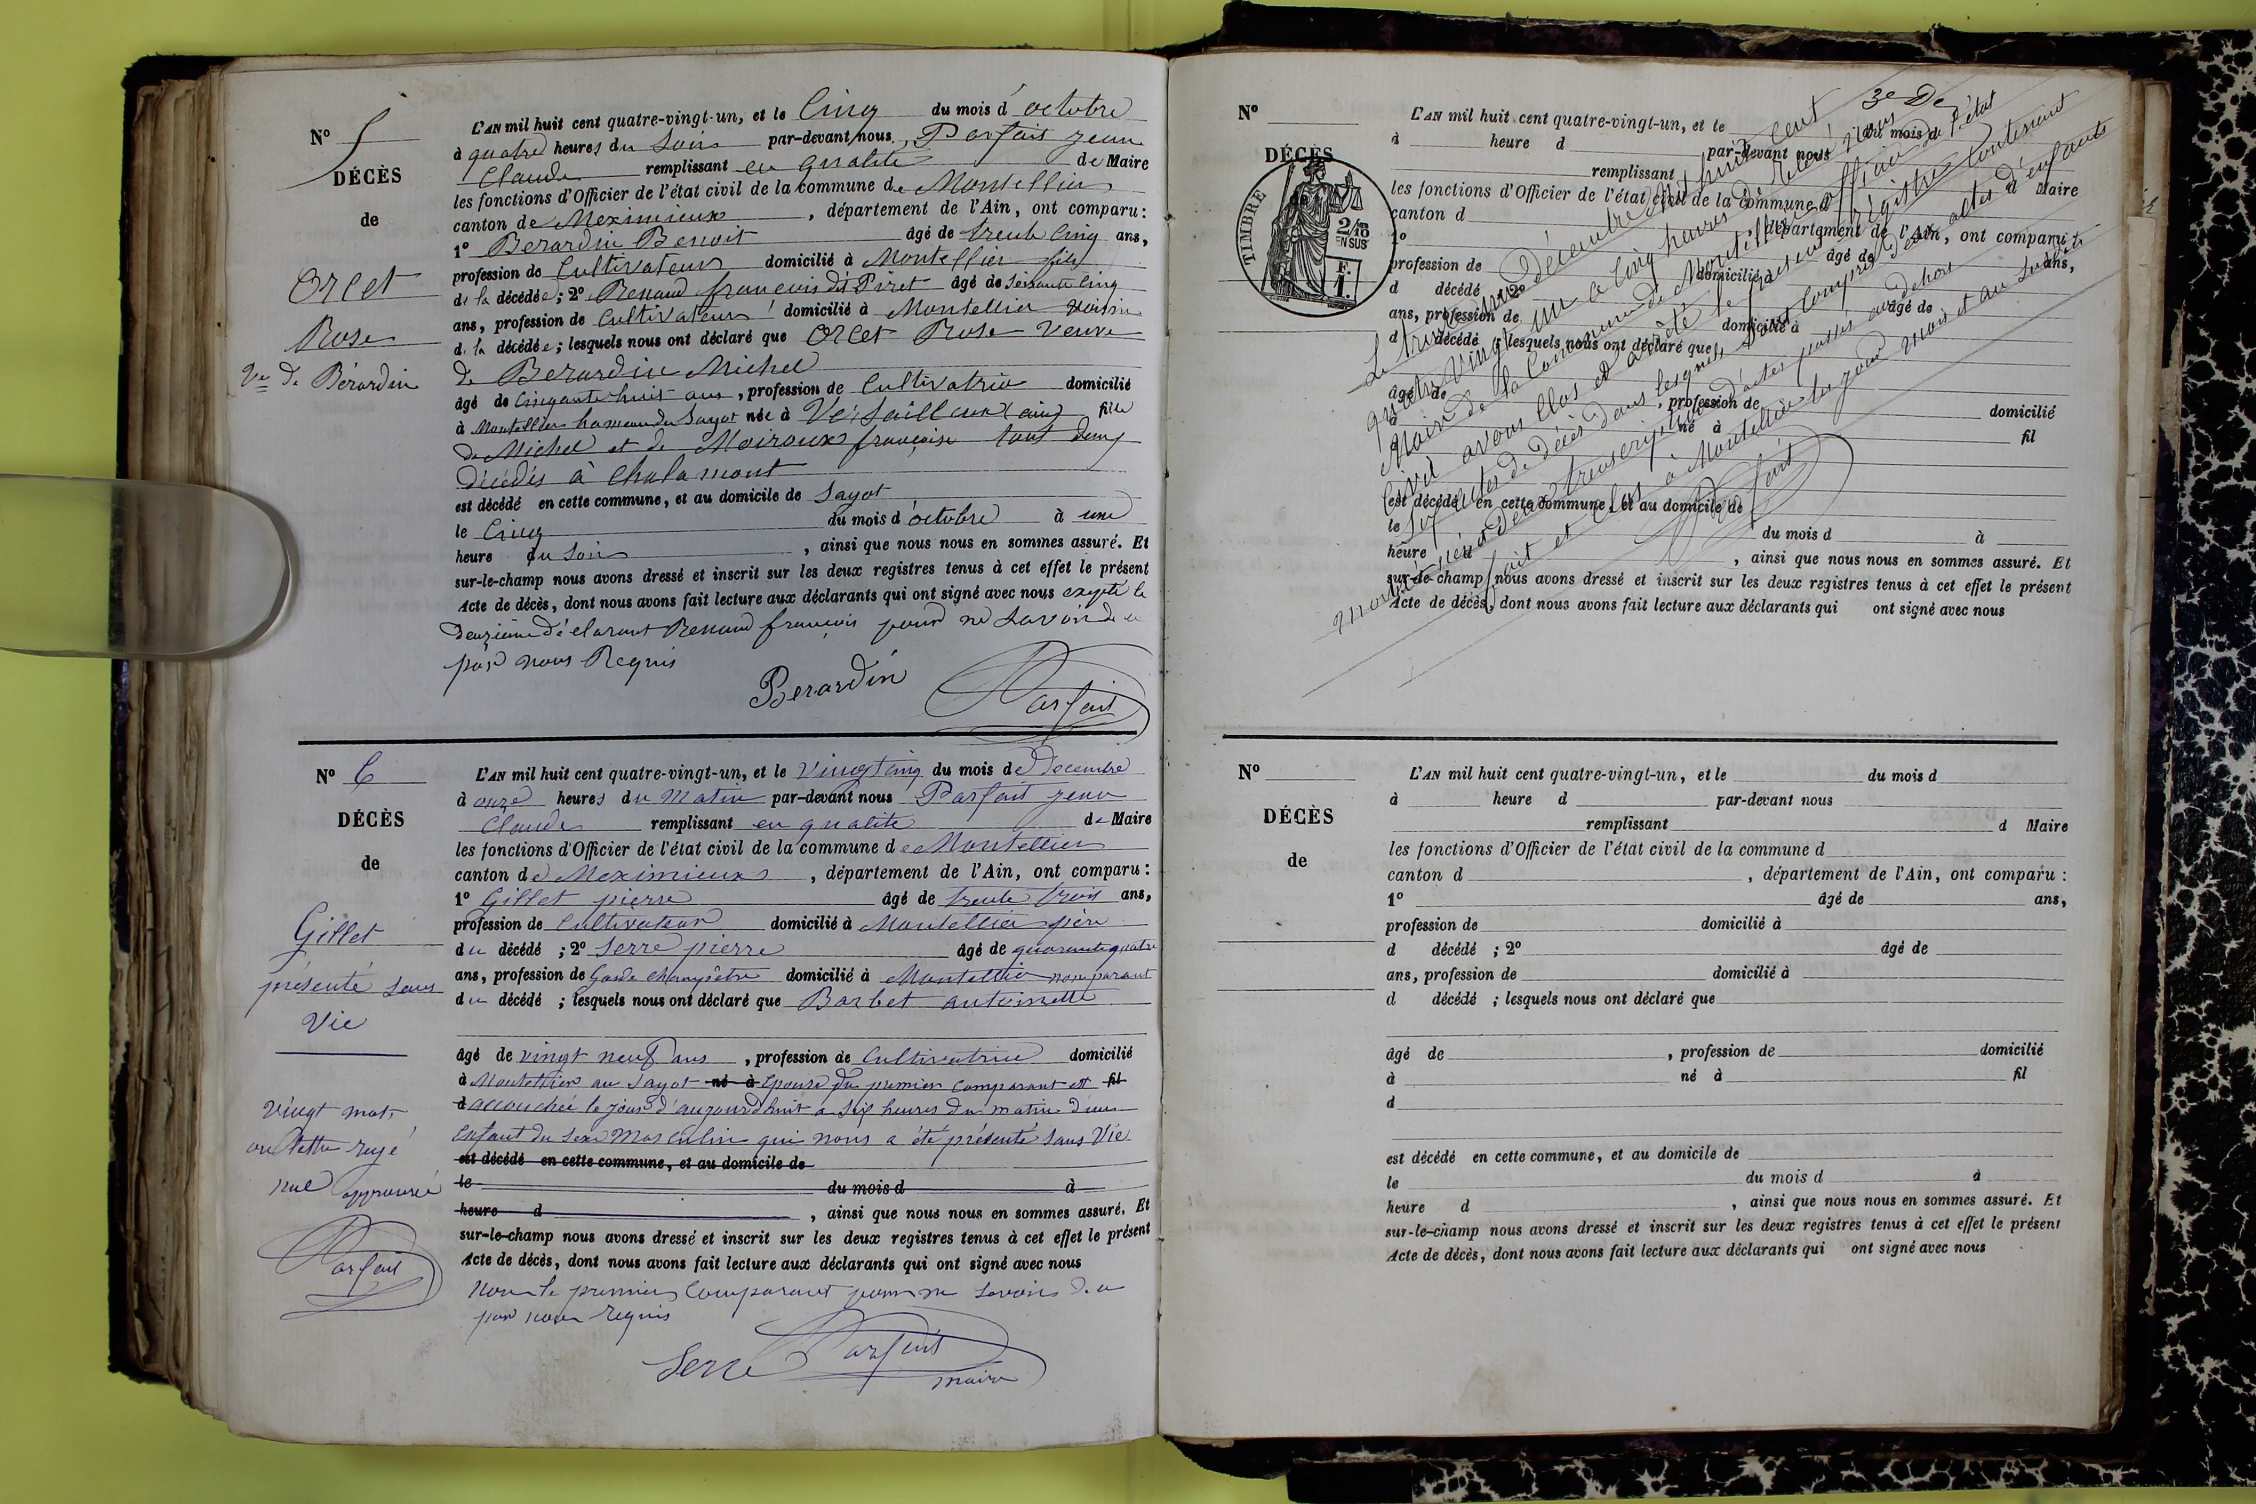 N° 5
DÉCÈS
de
Orcet
Rose
Ve de Bérardin
L'AN mil huit cent quatre-vingt-un, et le Cinq du mois d'octobre
à quatre heures du Soir par-devant nous, Parfait jean
Claude remplissant en qualité de Maire
les fonctions d'Officier de l'état civil de la commune de Montellier
canton de Meximieux, département de l'Ain, ont comparu :
1° Berardin Benoit âgé de trente cinq ans,
profession de Cultivateur domicilié à Montellier fils
de la décédée ; 2° Renaud francois dit Piret âgé de Soissante cinq
ans, profession de Cultivateur domicilié à Montellier voisin
de la décédée ; lesquels nous ont déclaré que Orcet Rose veuve
de Berardin Michel
âgé de Cinquante huit ans, profession de Cultivatrice domicilié
à Montellier hameau du Sayot née à Versailleux (ain) fille
de Michel et de Moiroux françoise tout deux
décédés à Chalamont
est décédé en cette commune, et au domicile de Sayot
le Cinq du mois d'octobre à une
heure du Soir, ainsi que nous nous en sommes assuré. Et
sur-le-champ nous avons dressé et inscrit sur les deux registres tenus à cet effet le présent
Acte de décès, dont nous avons fait lecture aux déclarants qui ont signé avec nous exepté le
deuzième déclarant Renaud françois pour ne Savoir de ce
par nous Requis
Berardin Parfait
N° 6
DÉCÈS
de
Gillet
présenté sans
Vie
vingt mots
ou lettre rayé
nul approuvé
Parfait
L'AN mil huit cent quatre-vingt-un, et le Vingt cinq du mois de Decembre
à onze heures du Matin par-devant nous Parfait jean
Claude remplissant en qualité de Maire
les fonctions d'Officier de l'état civil de la commune de Montellier
canton de Meximieux, département de l'Ain, ont comparu :
1° Gillet pierre âgé de trente trois ans,
profession de Cultivateur domicilié à Montellier père
du décédé ; 2° Serre pierre âgé de quarante quatre
ans, profession de Garde champêtre domicilié à Montellier non parant
du décédé ; lesquels nous ont déclaré que Barbet antoinette
âgé de vingt neuf ans, profession de Cultivatrice domicilié
à Montellier au Sayot né à Epouse du premier Comparant et fil
d accouchée le jour d'aujourdhuit a six heures du matin d'un
Enfant du Sexe Masculin qui nous a été présenté Sans Vie
est décédé en cette commune, et au domicile de
le du mois d à
heure d, ainsi que nous nous en sommes assuré. Et
sur-le-champ nous avons dressé et inscrit sur les deux registres tenus à cet effet le présent
Acte de décès, dont nous avons fait lecture aux déclarants qui ont signé avec nous
Non le premier Comparant pour ne Savoir de ce
par nous requis
Serre Parfait
maire
N°
DÉCÈS
TIMBRE
2/10
EN SUS
F.
1.
L'AN mil huit cent quatre-vingt-un, et le du mois d
à heure d par-devant nous
remplissant d Maire
les fonctions d'Officier de l'état civil de la commune d
canton d, département de l'Ain, ont comparu :
1° âgé de ans,
profession de domicilié à
d décédé ; 2° âgé de
ans, profession de domicilié à
d décédé ; lesquels nous ont déclaré que
âgé de, profession de domicilié
à né à fil
d
est décédé en cette commune, et au domicile de
le du mois d à
heure d, ainsi que nous nous en sommes assuré. Et
sur-le-champ nous avons dressé et inscrit sur les deux registres tenus à cet effet le présent
Acte de décès, dont nous avons fait lecture aux déclarants qui ont signé avec nous
3e De
Le trente un décembre Mil huit cent
quatre Vingt un a Cinq heures du Soir nous
Maire de la Commune de Montellier officier de l'état
Civil avons Clos et arrêté le présent régistre Contenant
Six actes de décès dans lesquels Sont Compris deux actes d'enfants
mort né et deux transcriptions d'actes passés au dehors
fait et Clos à Montellier les jour mois et an Susdit
Parfait
N°
DÉCÈS
de
L'AN mil huit cent quatre-vingt-un, et le du mois d
à heure d par-devant nous
remplissant d Maire
les fonctions d'Officier de l'état civil de la commune d
canton d, département de l'Ain, ont comparu :
1° âgé de ans,
profession de domicilié à
d décédé ; 2° âgé de
ans, profession de domicilié à
d décédé ; lesquels nous ont déclaré que
âgé de, profession de domicilié
à né à fil
d
est décédé en cette commune, et au domicile de
le du mois d à
heure d, ainsi que nous nous en sommes assuré. Et
sur-le-champ nous avons dressé et inscrit sur les deux registres tenus à cet effet le présent
Acte de décès, dont nous avons fait lecture aux déclarants qui ont signé avec nous